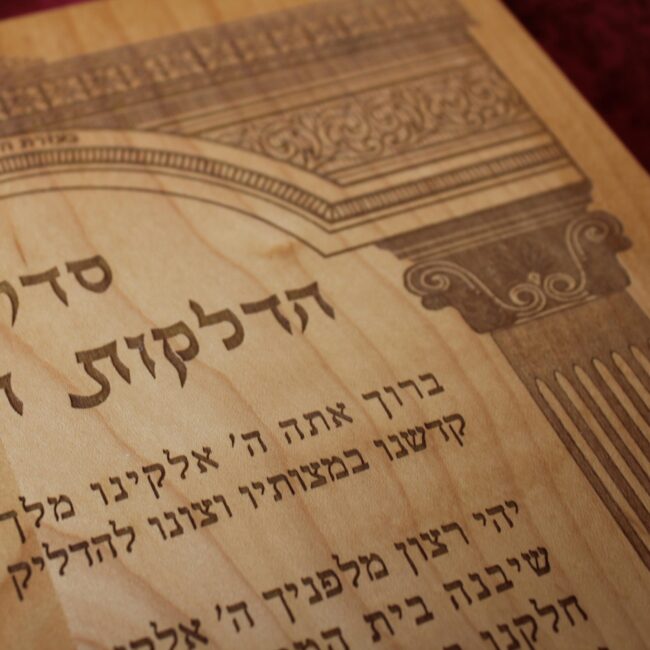 סדר
הדלקות
ברוך אתה ה' אלקינו מלך
קדשנו במצותיו וצונו להדליק
יהי רצון מלפניך ה'
שיבנה בית
חלקנו